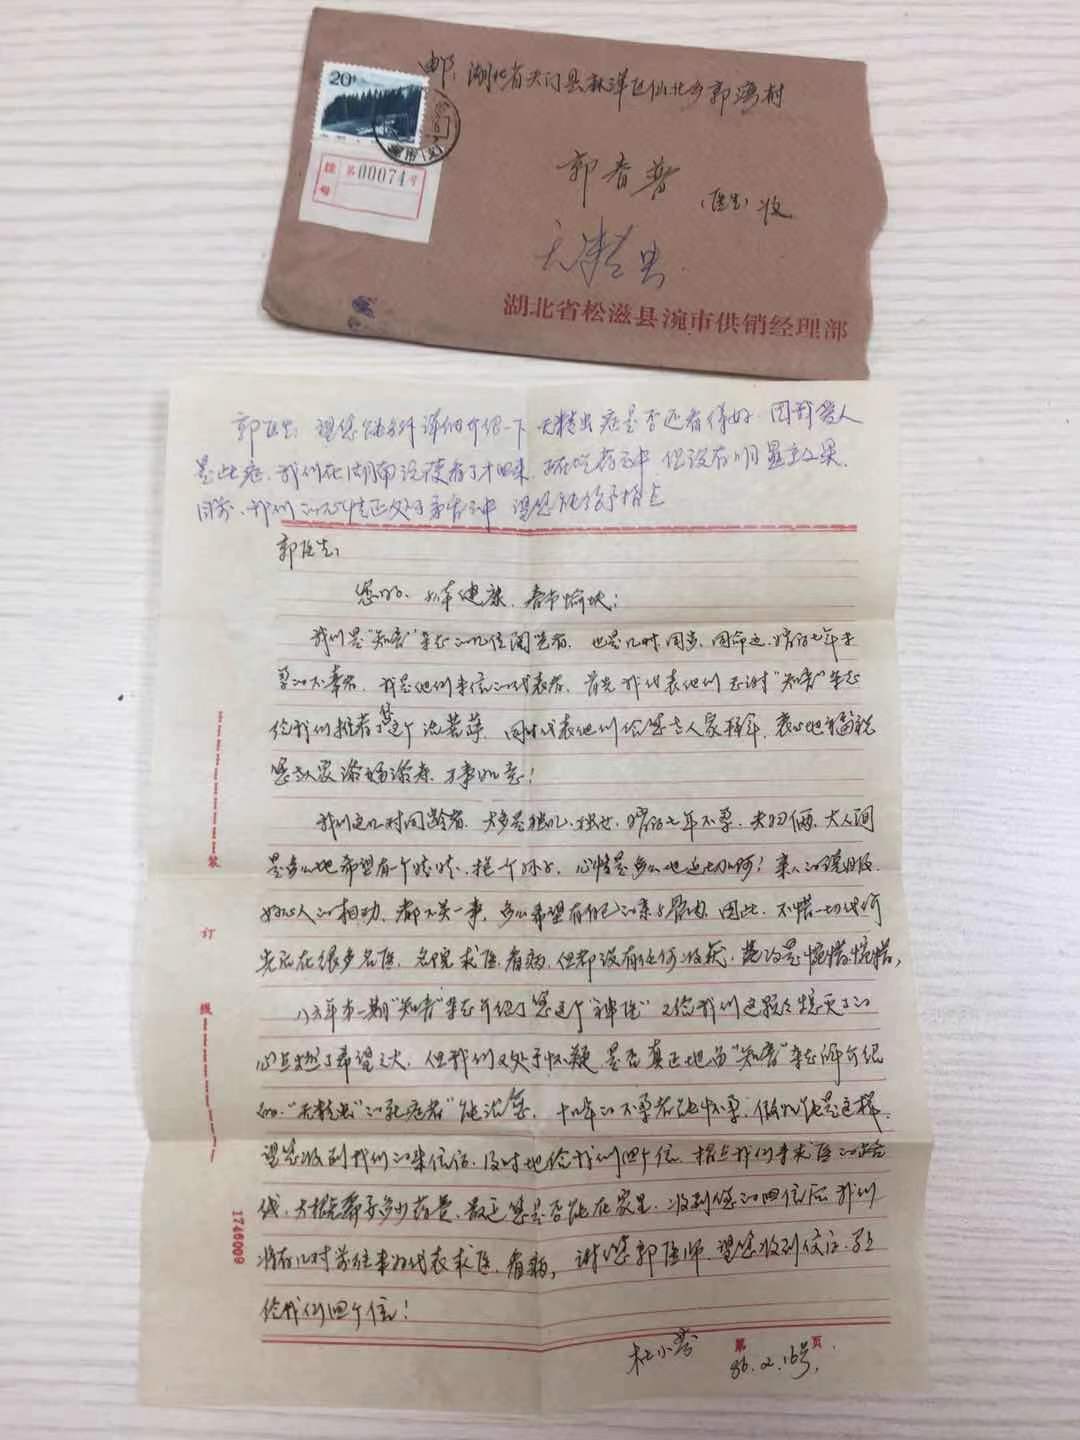 20分
邮：湖北省天门县
郭湾村
挂号 第00074号
郭春普
（医生）收
无精虫
湖北省松滋县涴市供销经理部
郭医生：望您能够详细介绍一下无精虫症是否还有得好，因我爱人
是此症，我们在湖南 看了才回来，现在吃药之中，但没有明显效果，
目前，我们的心情正处于矛盾之中，望您能给予指点
郭医生：
您好、身体健康、春节愉快！
我们是"知音"杂志的几位阅览者，也是几对同岁、同命运、婚后七年不
孕的不幸者，我是他们来信的代表者，首先我代表他们感谢"知音"杂志
给我们 您这个 ，同时代表他们给您老人家拜年，衷心地祝
您老人家 ，万事如意！
我们这几对同龄者，大多是独儿、独女，婚后七年不孕，夫妇俩、大人间
是多么地希望有一个孩子，抱一个孙子，心情是多么地迫切啊！亲人的
好心人的相劝，都不关一事，多么希望有自己的亲生骨肉，因此，不惜一切代价
先后在很多名医、名院求医、看病，但都没有任何收获，
八六年第一期"知音"杂志介绍了您这个"神医"又给我们这颗
心点燃了希望之火，但我们又处于怀疑，是否真正地如"知音"杂志所介绍
的，"无精虫"的 能治 ，十几年的不孕者能怀孕，假如能是这样，
望您收到我们的来信后，及时地给我们回个信，指点我们来求医的路
线，大概需要多少药费，最近您是否能在家里，收到您的回信后我们
将有几对前往来 代表求医、看病，谢谢您郭医师，望您收到信后，
给我们回个信！
杜小
第 页
86.2.16号
装
订
线
1746009